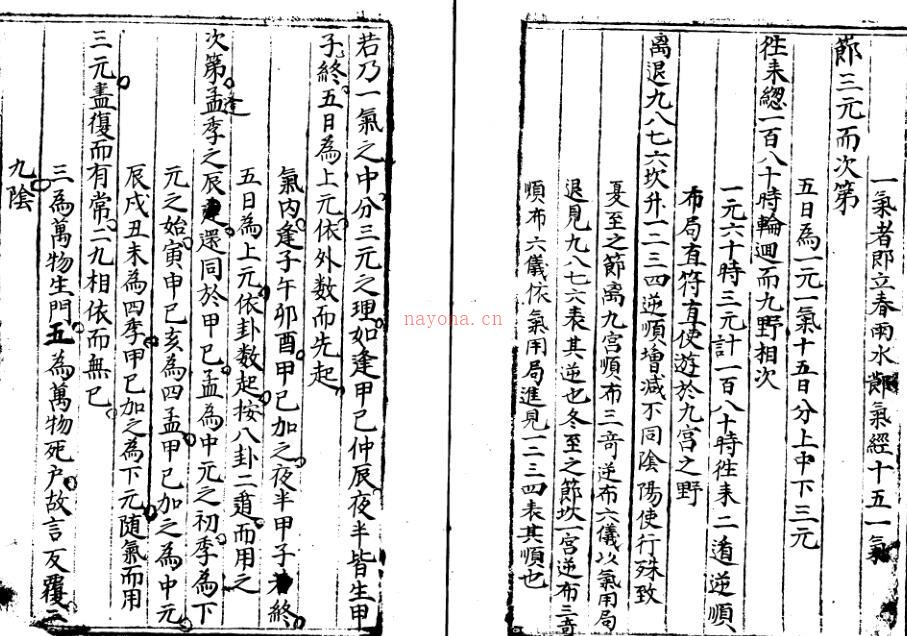 一氣者即立春雨水節氣經十五一氣
節三元而次第
五日為一元一氣十五日分上中下三元
徃来緫一百八十時輪廻而九野相次
一元六十時三元計一百八十時徃来二遁逆順
布局直符直使遊於九宫之野
离退九八七六坎升一二三四逆順增減不同陰陽使行殊致
夏至之節离九宫順布三竒逆布六儀以氣用局
退見九八七六表其逆也冬至之節坎一宫逆布三竒
順布六儀依氣用局進見一二三四表其順也
若乃一氣之中分三元之理如逢甲己仲辰夜半皆生甲
子終五日為上元依外數而先起
氣内逢子午夘酉甲己加之夜半甲子終
五日為上元依卦數起按八卦二遁而用之
次第逢孟季之辰還同於甲己孟為中元之初季為下
元之始寅申巳亥為四孟甲己加之為中元
辰戌丑未為四季甲己加之為下元随氣而用
三元盡復而有常二九相依而無已
三為萬物生門五為萬物死户故言反覆三
九陰
nayona.cn